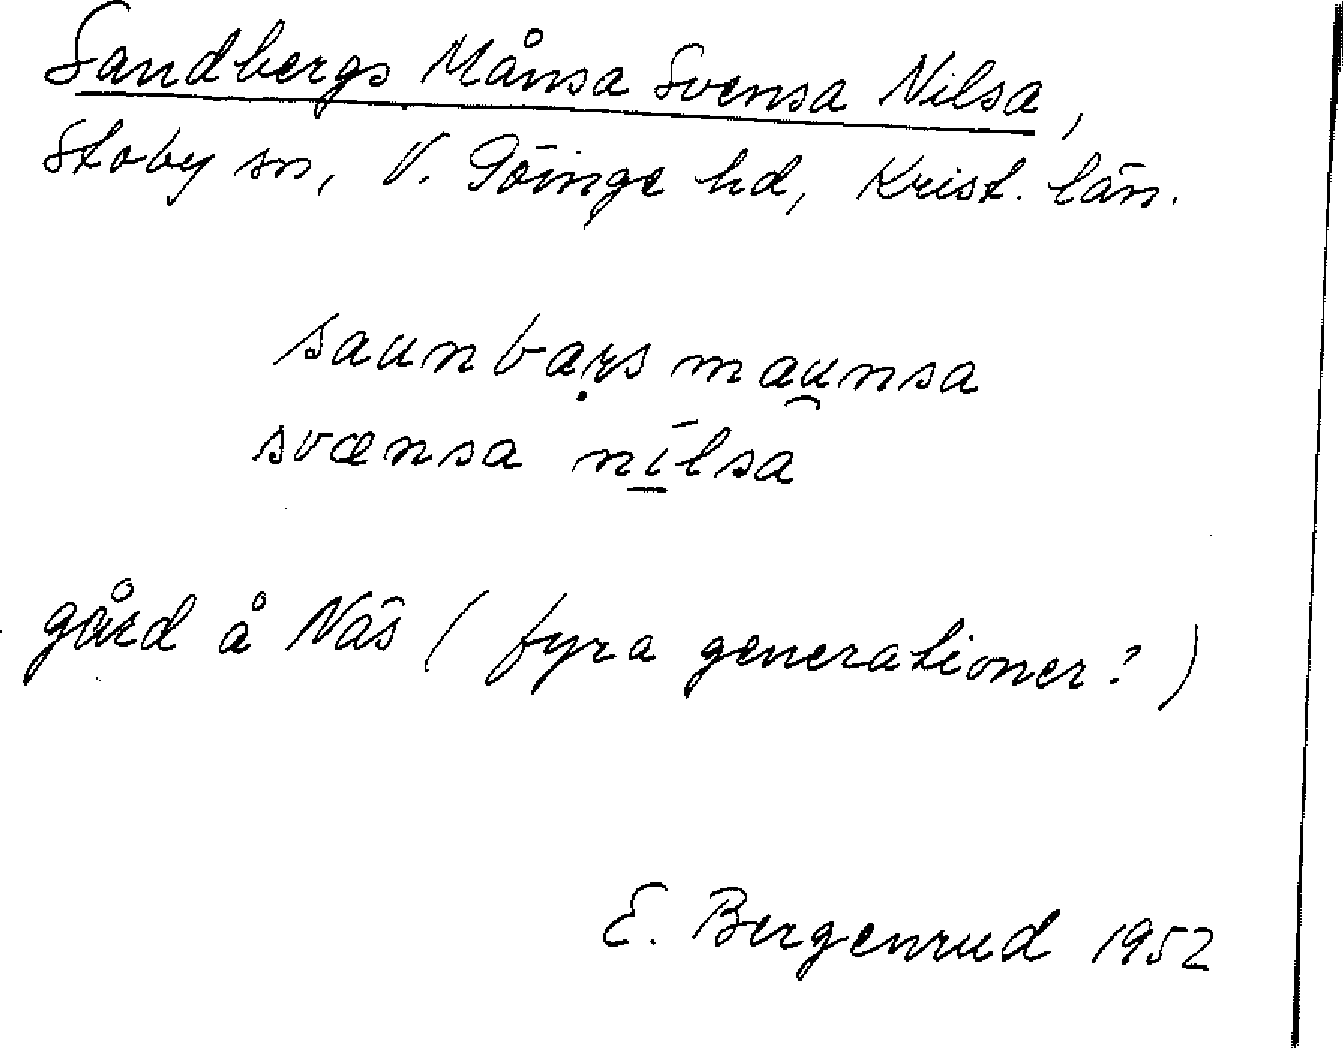 Sandbergs Månsa Svensa Nilsa,
Stoby sn, V. Göinge hd, Krist. län.
saunbạrs mau̯nsa
svænsa ni̱lsa
gård å Näs (fyra generationer?)
E. Bergenrud 1952